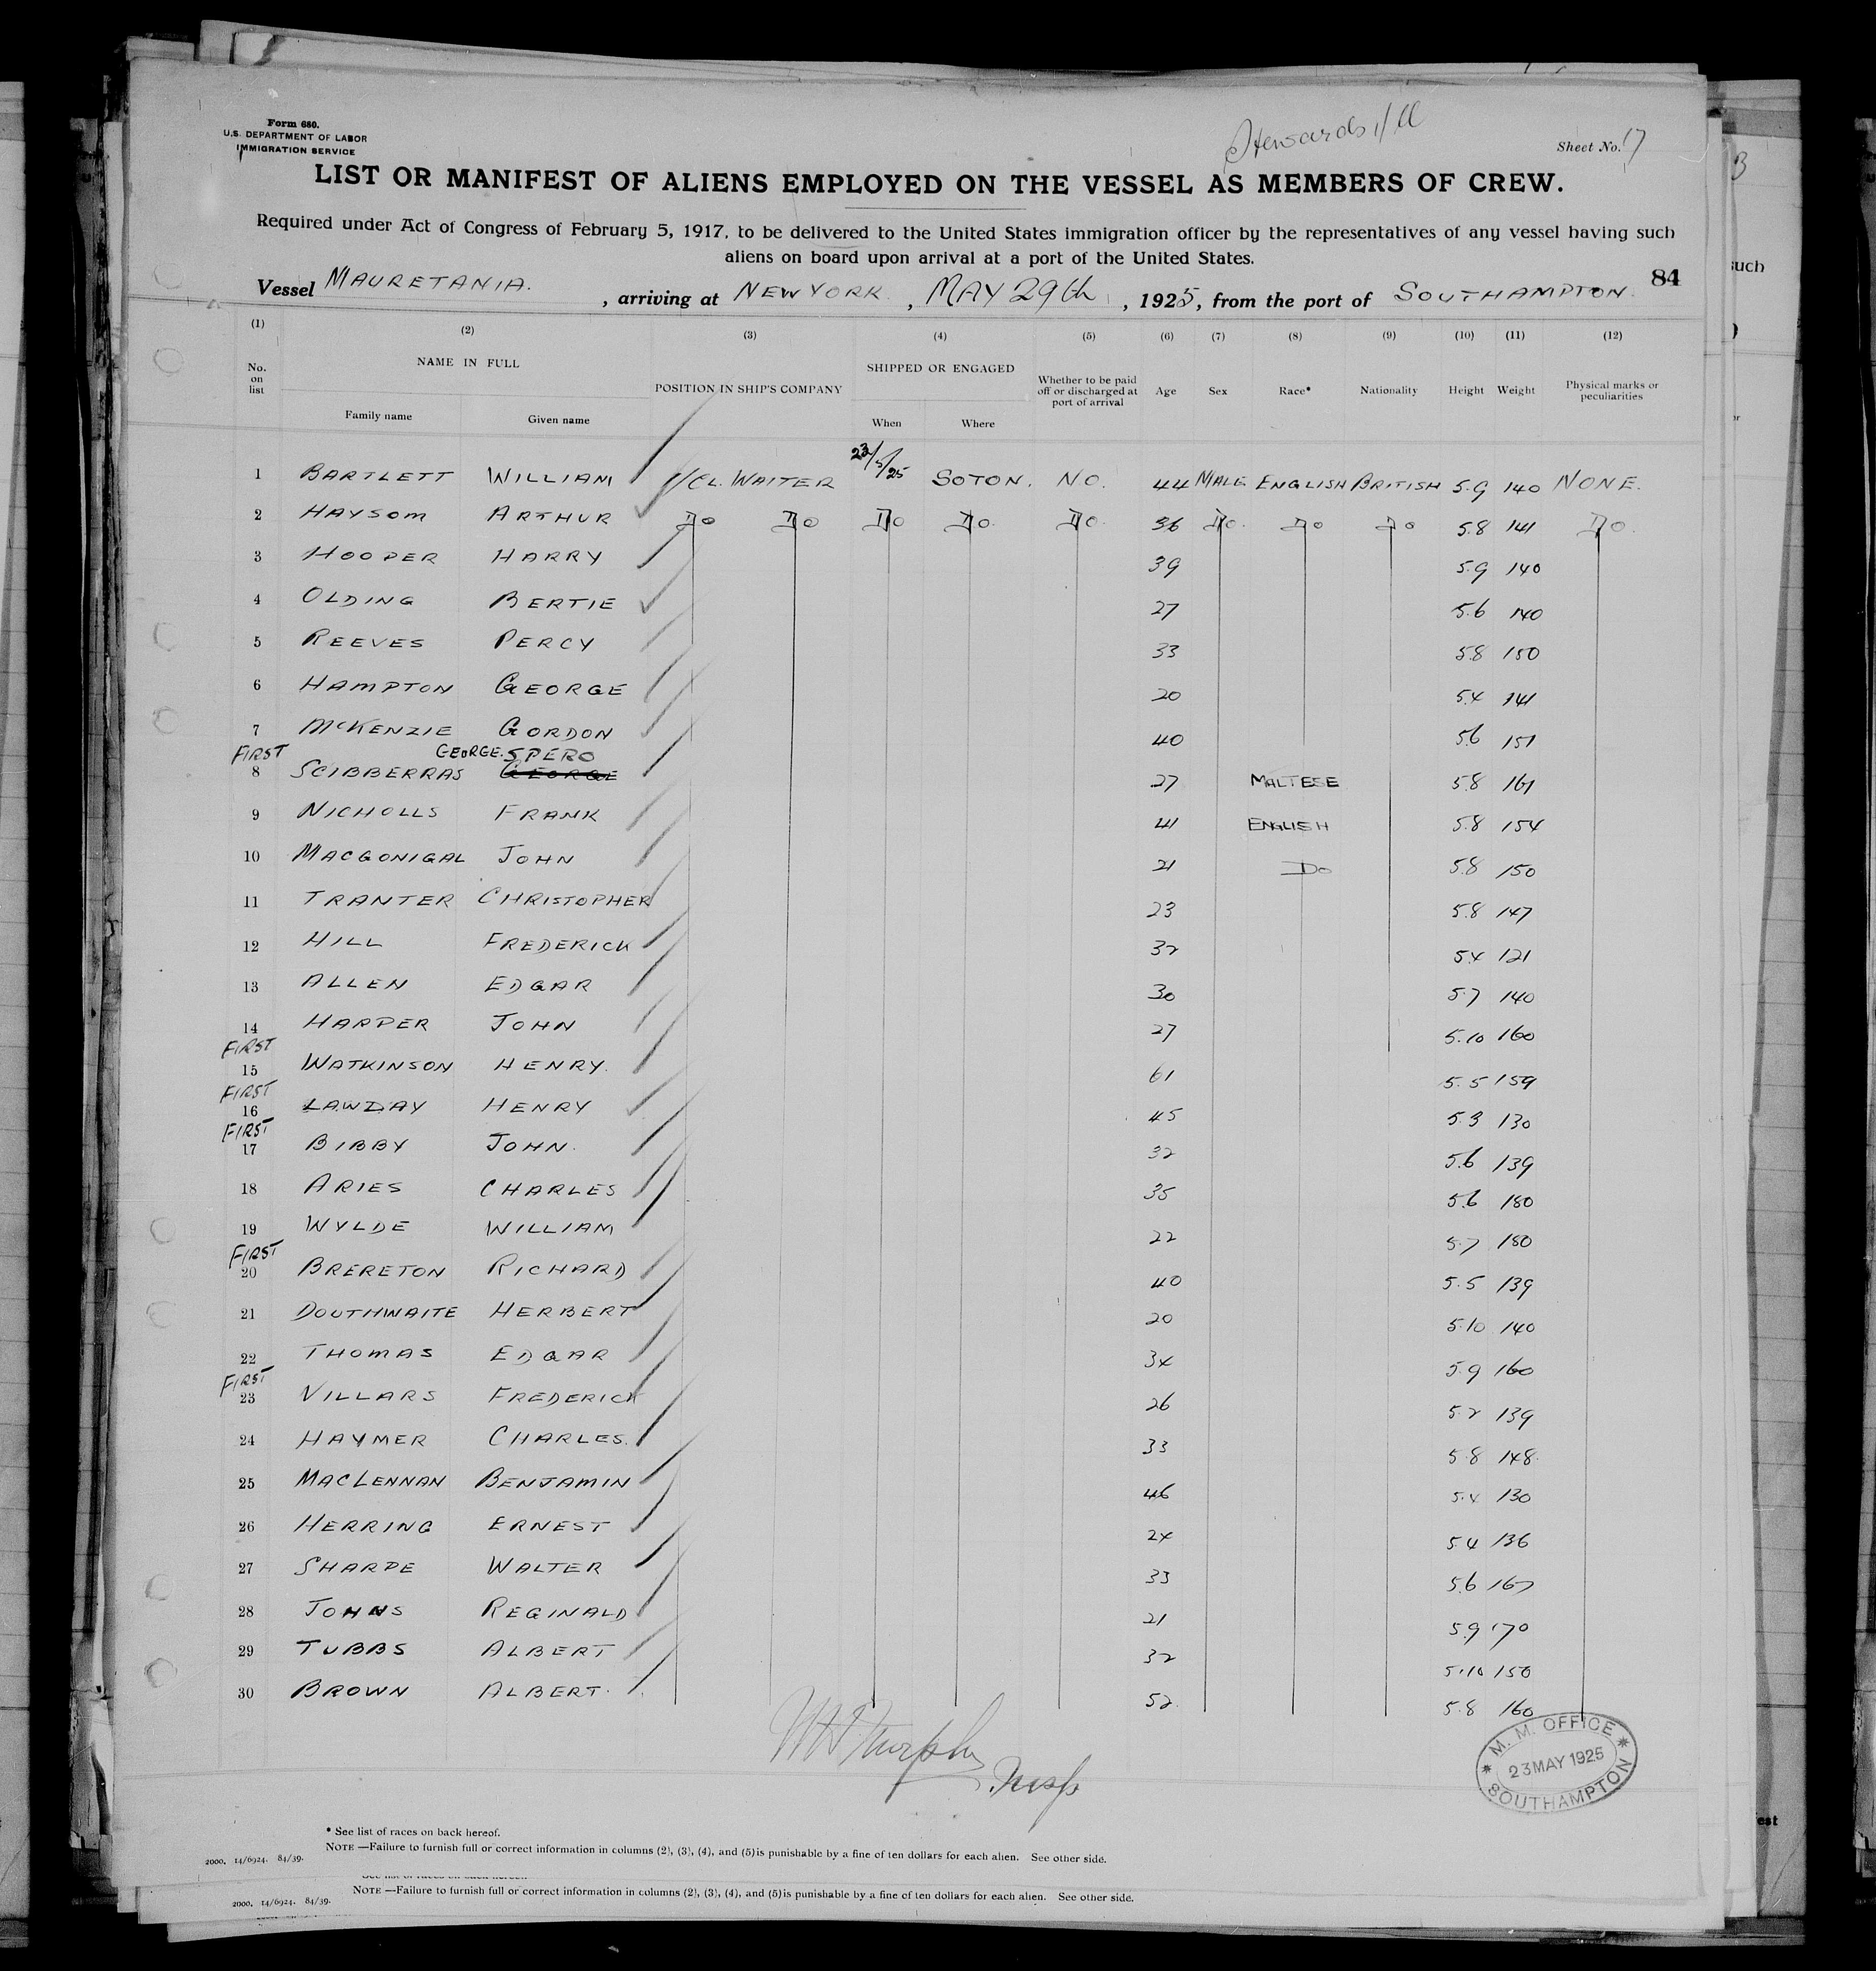 Form 680.
U.S. DEPARTMENT OF LABOR
IMMIGRATION SERVICE
Stewards 1/Cl
Sheet No. 17
LIST OR MANIFEST OF ALIENS EMPLOYED ON THE VESSEL AS MEMBERS OF CREW.
Required under Act of Congress of February 5, 1917, to be delivered to the United States immigration officer by the representatives of any vessel having such
aliens on board upon arrival at a port of the United States.
84
Vessel MAURETANIA. , arriving at NEW YORK , MAY 29th , 1925, from the port of SOUTHAMPTON.
(1) (2) (3) (4) (5) (6) (7) (8) (9) (10) (11) (12)
No. on list NAME IN FULL POSITION IN SHIP'S COMPANY SHIPPED OR ENGAGED Whether to be paid off or discharged at port of arrival Age Sex Race* Nationality Height Weight Physical marks or peculiarities
Family name Given name When Where
1 BARTLETT WILLIAM 1/CL. WAITER 23/5/25 SOTON. NO. 44 MALE ENGLISH BRITISH 5.9 140 NONE.
2 HAYSOM ARTHUR Do Do Do Do. Do. 36 Do. Do Do 5.8 141 Do.
3 HOOPER HARRY 39 5.9 140
4 OLDING BERTIE 27 5.6 140
5 REEVES PERCY 33 5.8 150
6 HAMPTON GEORGE 20 5.4 141
7 McKENZIE GORDON 40 5.6 151
FIRST GEORGE. SPERO
8 SCIBBERRAS GEORGE 27 MALTESE 5.8 161
9 NICHOLLS FRANK 41 ENGLISH 5.8 154
10 MACGONIGAL JOHN 21 Do 5.8 150
11 TRANTER CHRISTOPHER 23 5.8 147
12 HILL FREDERICK 32 5.4 121
13 ALLEN EDGAR 30 5.7 140
14 HARPER JOHN 27 5.10 160
FIRST
15 WATKINSON HENRY. 61 5.5 159
FIRST
16 LAWDAY HENRY 45 5.3 130
FIRST
17 BIBBY JOHN. 32 5.6 139
18 ARIES CHARLES 35 5.6 180
19 WYLDE WILLIAM 22 5.7 180
FIRST
20 BRERETON RICHARD 40 5.5 139
21 DOUTHWAITE HERBERT 20 5.10 140
22 THOMAS EDGAR 34 5.9 160
FIRST
23 VILLARS FREDERICK 26 5.2 139
24 HAYMER CHARLES. 33 5.8 148
25 MACLENNAN BENJAMIN 46 5.4 130
26 HERRING ERNEST 24 5.4 136
27 SHARPE WALTER 33 5.6 167
28 JOHNS REGINALD 21 5.9 170
29 TUBBS ALBERT 32 5.10 150
30 BROWN ALBERT. 52. 5.8 160
Murphy
Insp
M. M. OFFICE
23 MAY 1925
SOUTHAMPTON
* See list of races on back hereof.
NOTE —Failure to furnish full or correct information in columns (2), (3), (4), and (5) is punishable by a fine of ten dollars for each alien. See other side.
2000. 14/6924. 84/39.
NOTE —Failure to furnish full or correct information in columns (2), (3), (4), and (5) is punishable by a fine of ten dollars for each alien. See other side.
2000. 14/6924. 84/39.